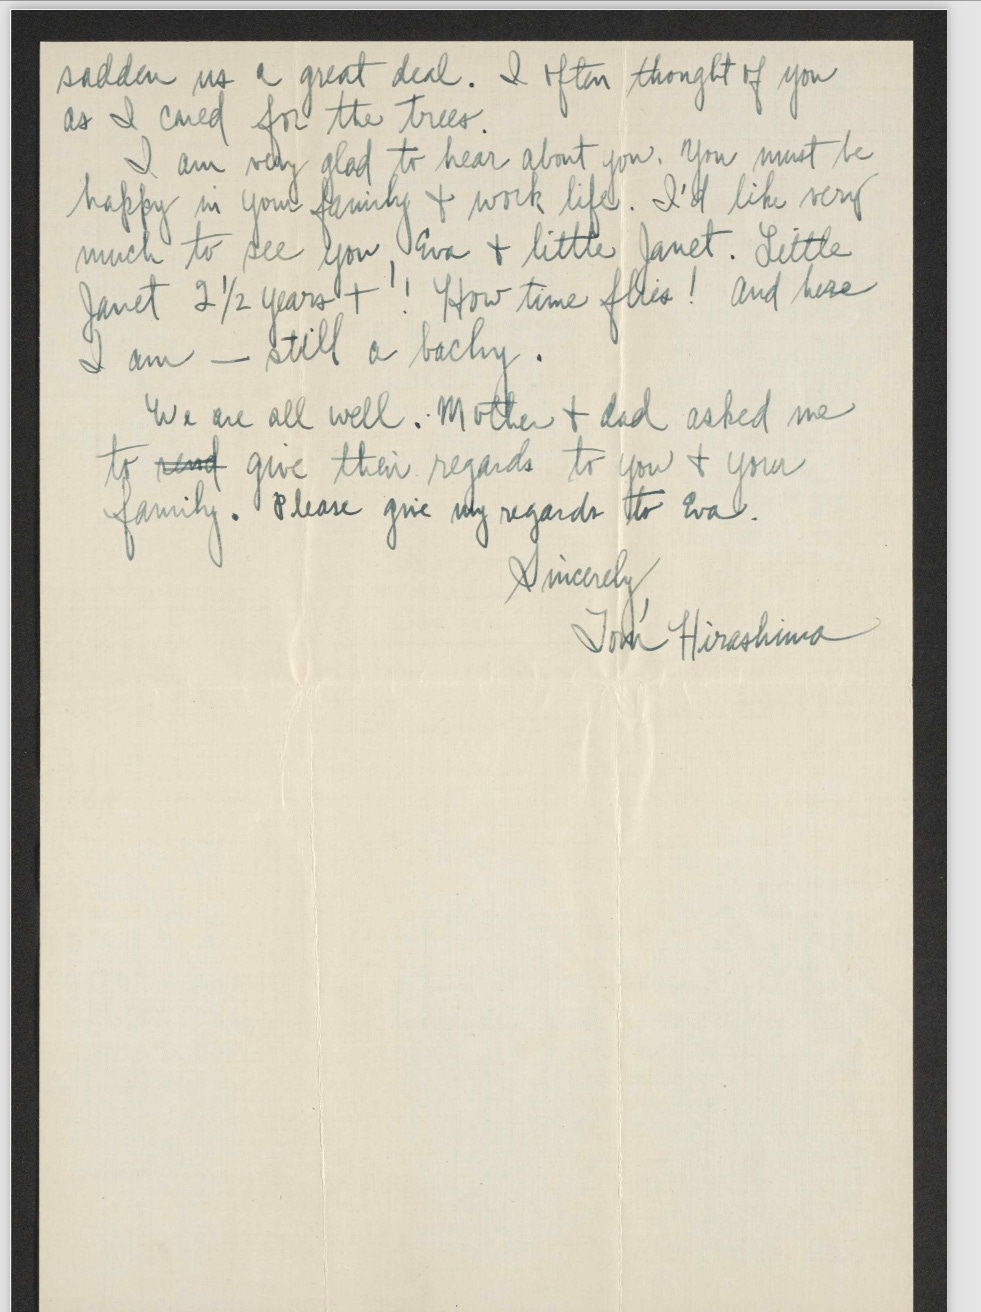 sadden us a great deal. I often thought of you
as I cared for the trees.
I am very glad to hear about you. You must be
happy in your family & work life. I'd like very
much to see you, Eva & little Janet. Little
Janet 2 1/2 years + !! How time flies! And here
I am — still a bachy.
We are all well. Mother & dad asked me
to send give their regards to you & your
family. Please give my regards to Eva.
Sincerely,
Tom Hirashima